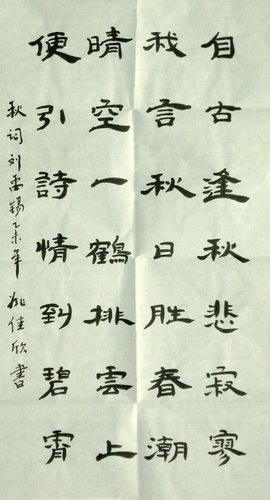 自古逢秋悲寂寥
我言秋日胜春潮
晴空一鶴排雲上
便引詩情到碧霄
秋词刘禹锡乙未年姚佳欣書